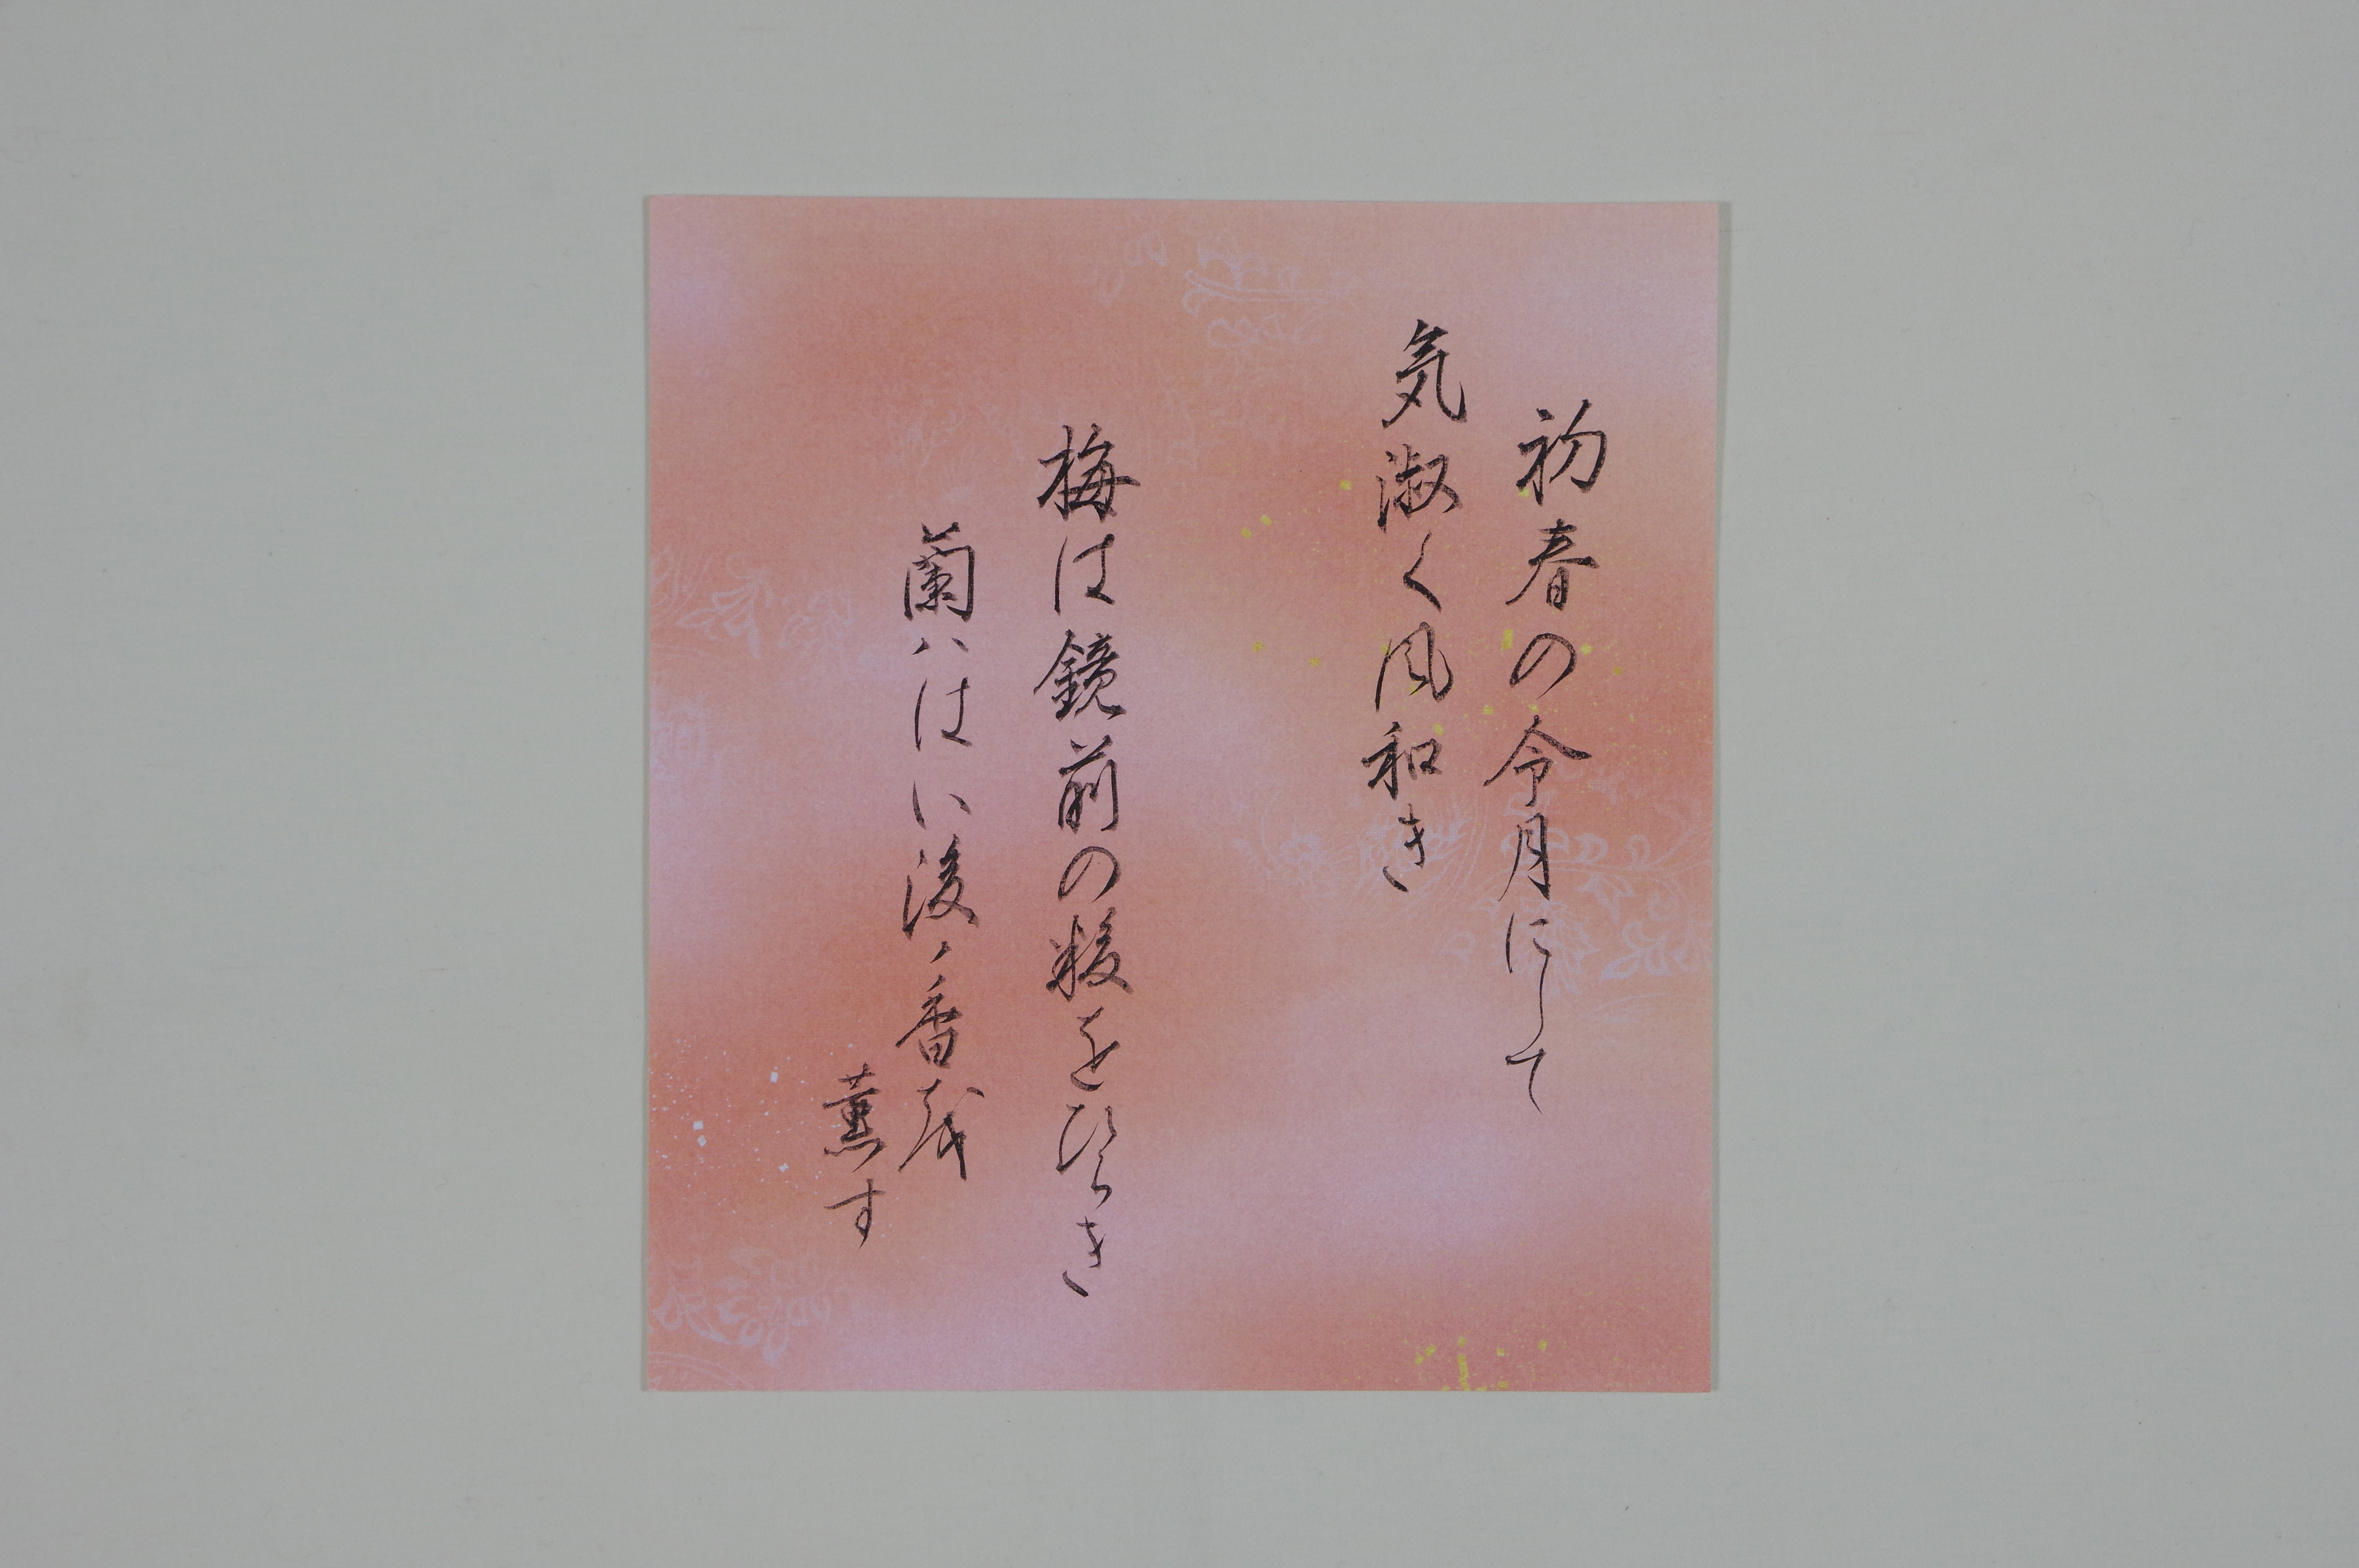 初春の令月にして
気淑く風和き
梅は鏡前のをひらき
蘭ハはい後ノ香を
薫す